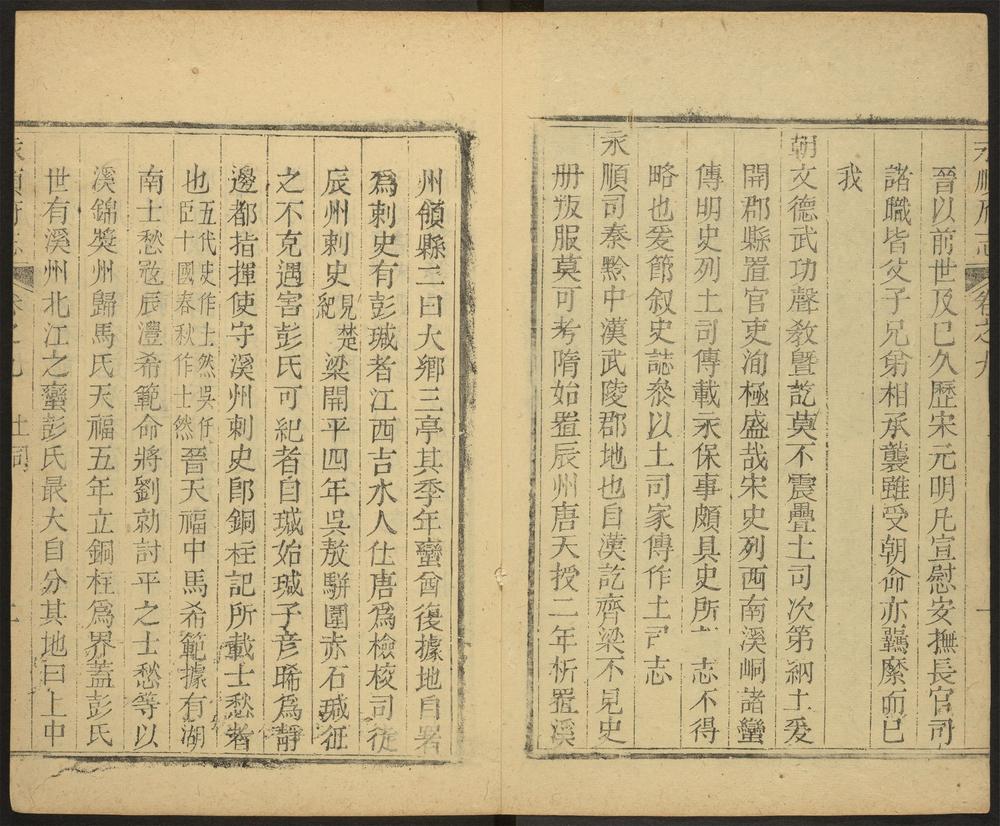 永順府志
卷之九
晉以前世及已久歷宋元明凡宣慰安撫長官司
諸職皆父子兄弟相承襲雖受朝命亦羈縻而已
我
朝文德武功聲教暨訖莫不震疊土司次第納土爰
開郡縣置官吏洵極盛哉宋史列西南溪峒諸蠻
傳明史列土司傳載永保事頗具史所 志不得
略也爰節叙史誌叅以土司家傳作土司志
永順司秦黔中漢武陵郡地也自漢訖齊梁不見史
册叛服莫可考隋始置辰州唐天授二年析置溪
州領縣二曰大鄉三亭其季年蠻酋復據地自署
爲刺史有彭瑊者江西吉水人仕唐爲檢校司徒
辰州刺史見楚紀梁開平四年吳敖駢圍赤石瑊征
之不克遇害彭氏可紀者自瑊始瑊子彦晞爲靜
邊都指揮使守溪州刺史卽銅柱記所載士愁者
也五代史作士然吳任臣十國春秋作士然晉天福中馬希範據有湖
南士愁寇辰澧希範命將劉勍討平之士愁等以
溪錦奬州歸馬氏天福五年立銅柱爲界蓋彭氏
世有溪州北江之蠻彭氏最大自分其地曰上中
永順府志
卷之九
土司
二